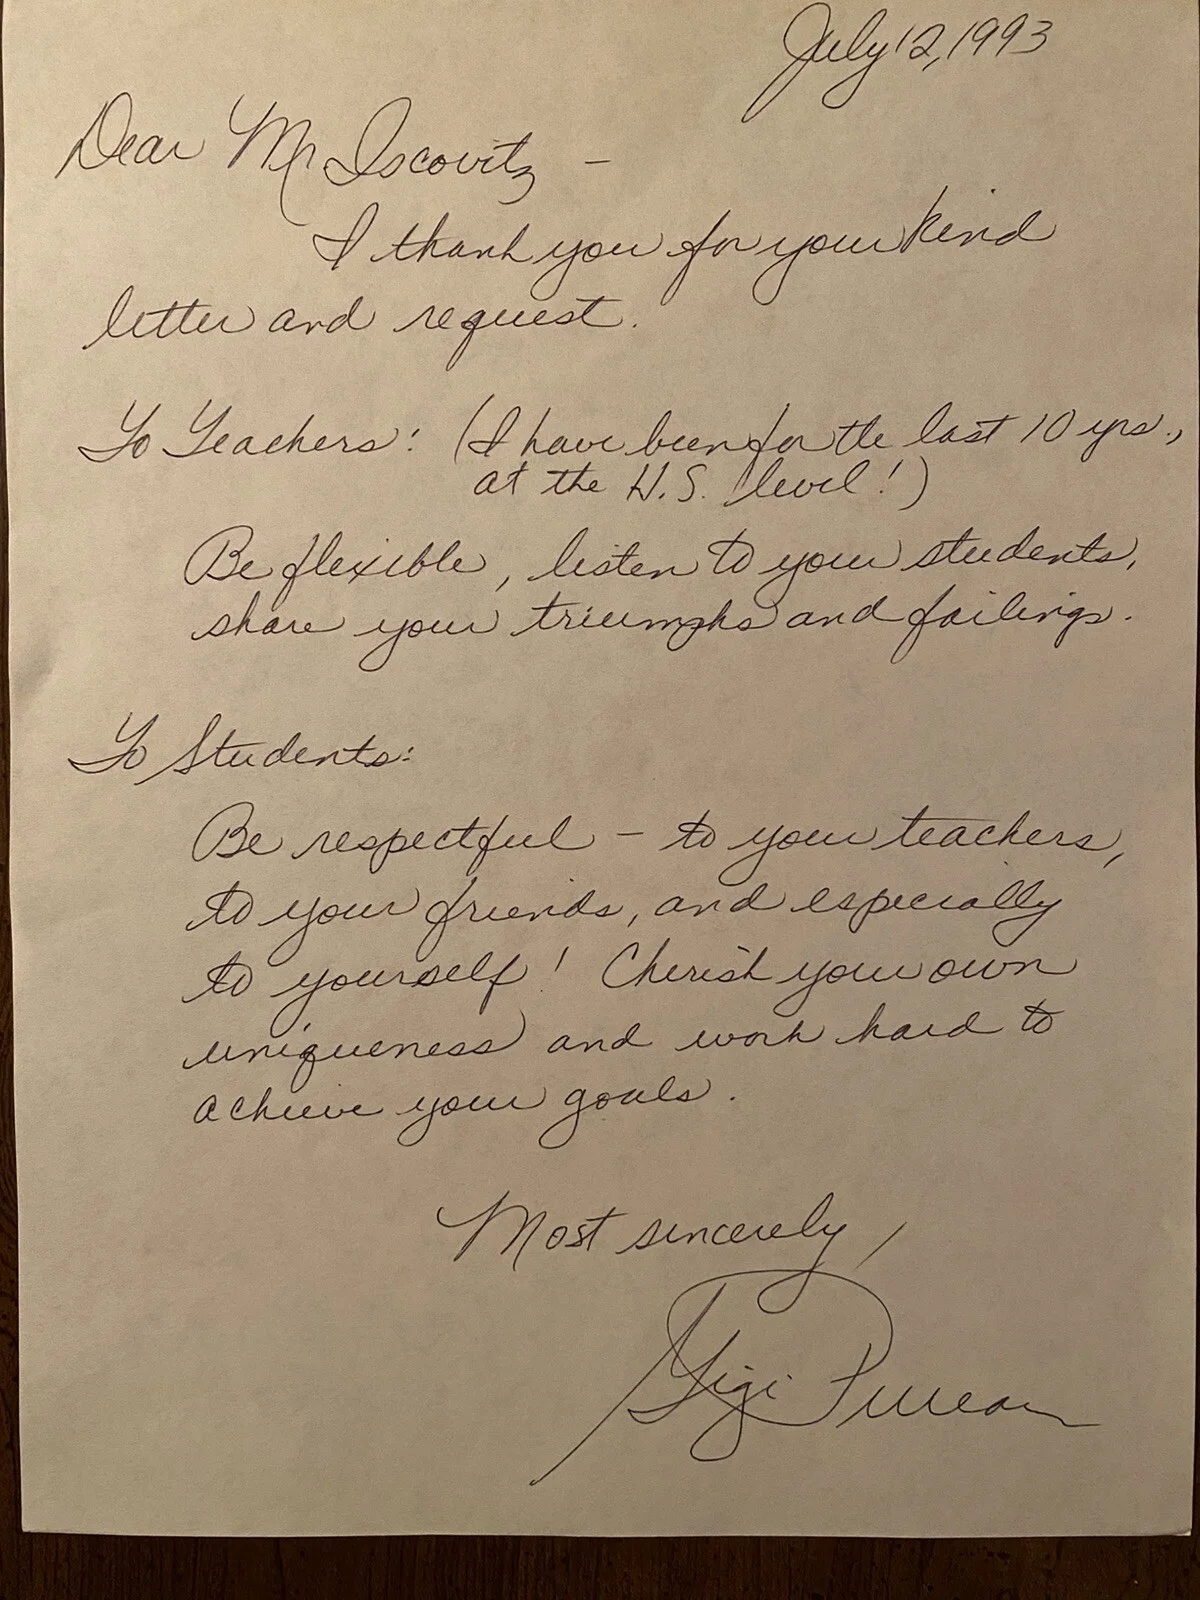 July 12, 1993
Dear Mr Iscovitz –
I thank you for your kind
letter and request.
To Teachers: (I have been for the last 10 yrs.,
at the H.S. level!)
Be flexible, listen to your students,
share your triumphs and failings.
To Students:
Be respectful – to your teachers,
to your friends, and especially
to yourself! Cherish your own
uniqueness and work hard to
achieve your goals.
Most sincerely,
Gigi Perreau